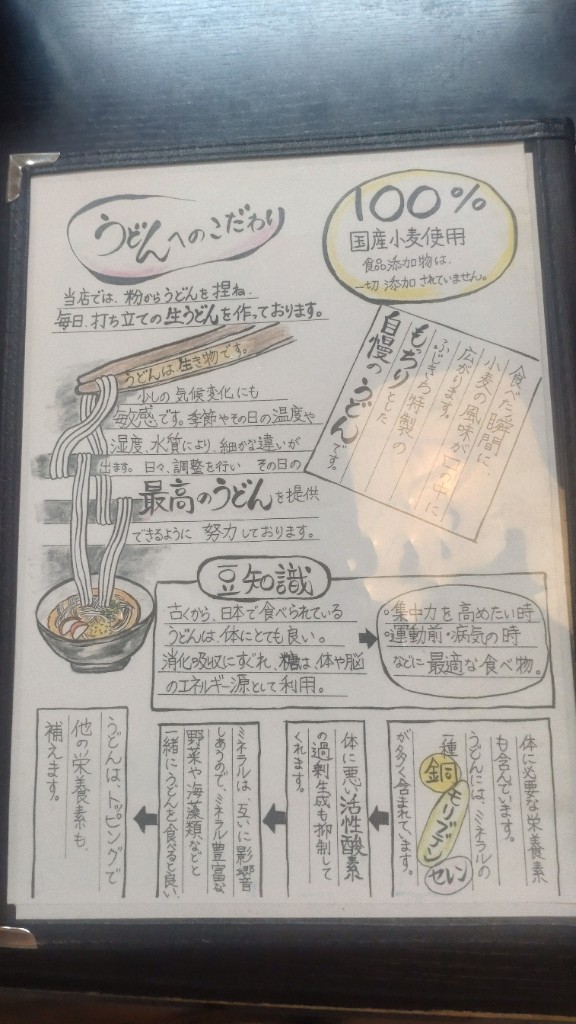 うどんへのこだわり
100%
国産小麦使用
食品添加物は、
一切添加されていません。
当店では、粉からうどんを捏ね、
毎日、打ち立ての生うどんを作っております。
うどんは生き物です。
少しの気候変化にも
敏感です。季節やその日の温度や
湿度、水質により、細かな違いが
出ます。日々、調整を行い その日の
最高のうどんを提供
できるように 努力しております。
食べた瞬間に、
小麦の風味が口の中に
広がります。
ふじきち特製の
もっちりとした
自慢のうどんです。
豆知識
古くから、日本で食べられている
うどんは体にとても良い。
消化吸収にすぐれ、糖は、体や脳
のエネルギー源として利用。
・集中力を高めたい時
・運動前・病気の時
などに最適な食べ物。
体に必要な栄養素
も含んでいます。
うどんには、ミネラルの
一種 銅 モリブデン セレン
が多く含まれています。
体に悪い活性酸素
の過剰生成も抑制して
くれます。
ミネラルは、互いに影響
しあうので、ミネラル豊富な
野菜や海藻類などと
一緒にうどんを食べると良い
うどんは、トッピングで
他の栄養素も、
補えます。